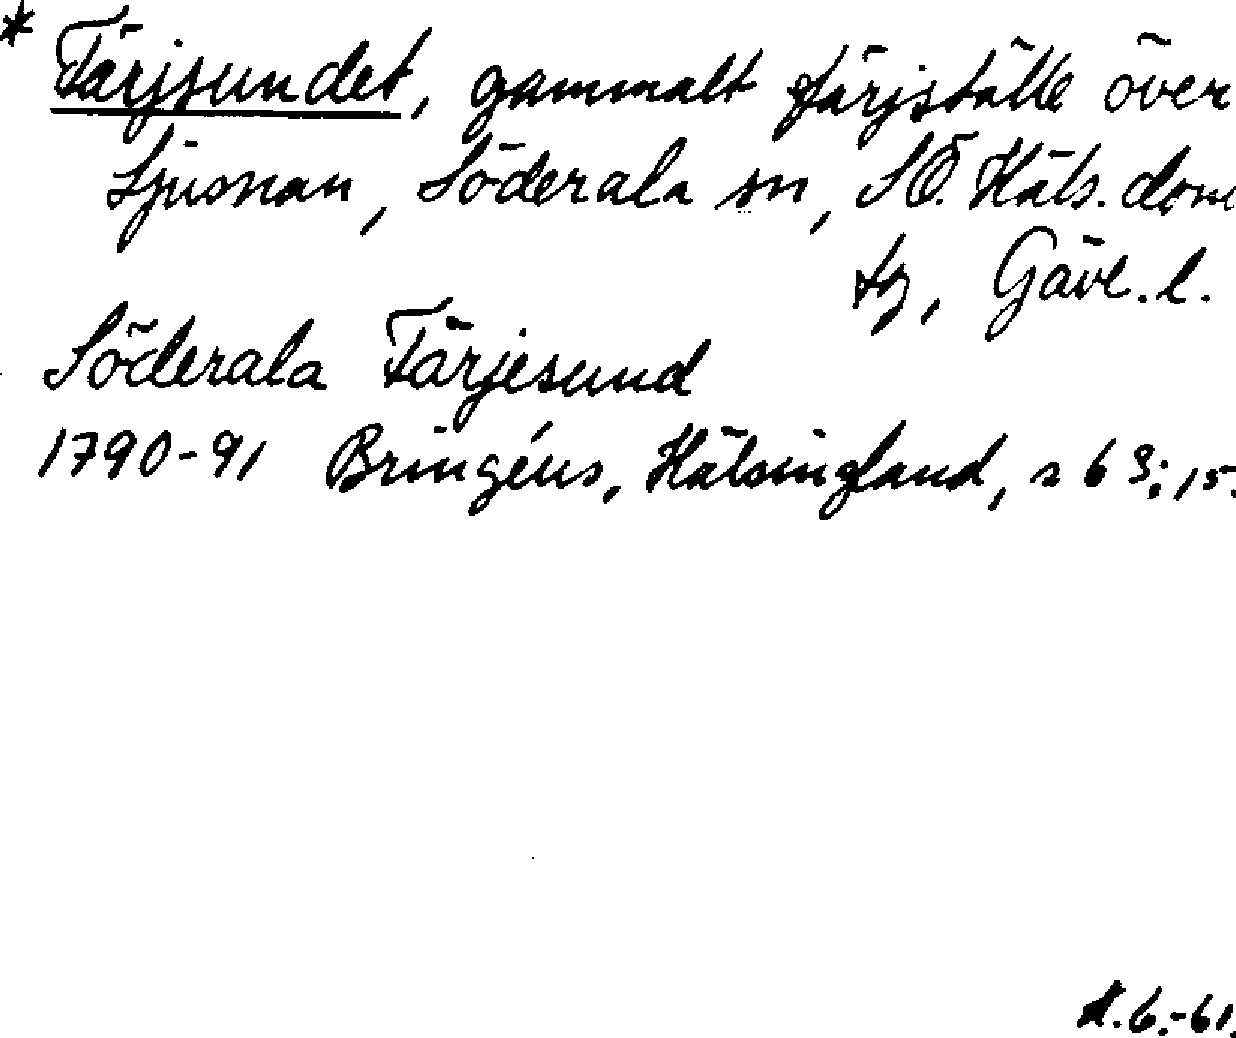 * Färjsundet, gammalt färjställe över
Ljusnan, Söderala sn, SÖ. Häls. dom
tg, Gävl. l.
Söderala Färjesund
1790-91 Bringéus, Hälsingland, s 63; 15.
6.-61.